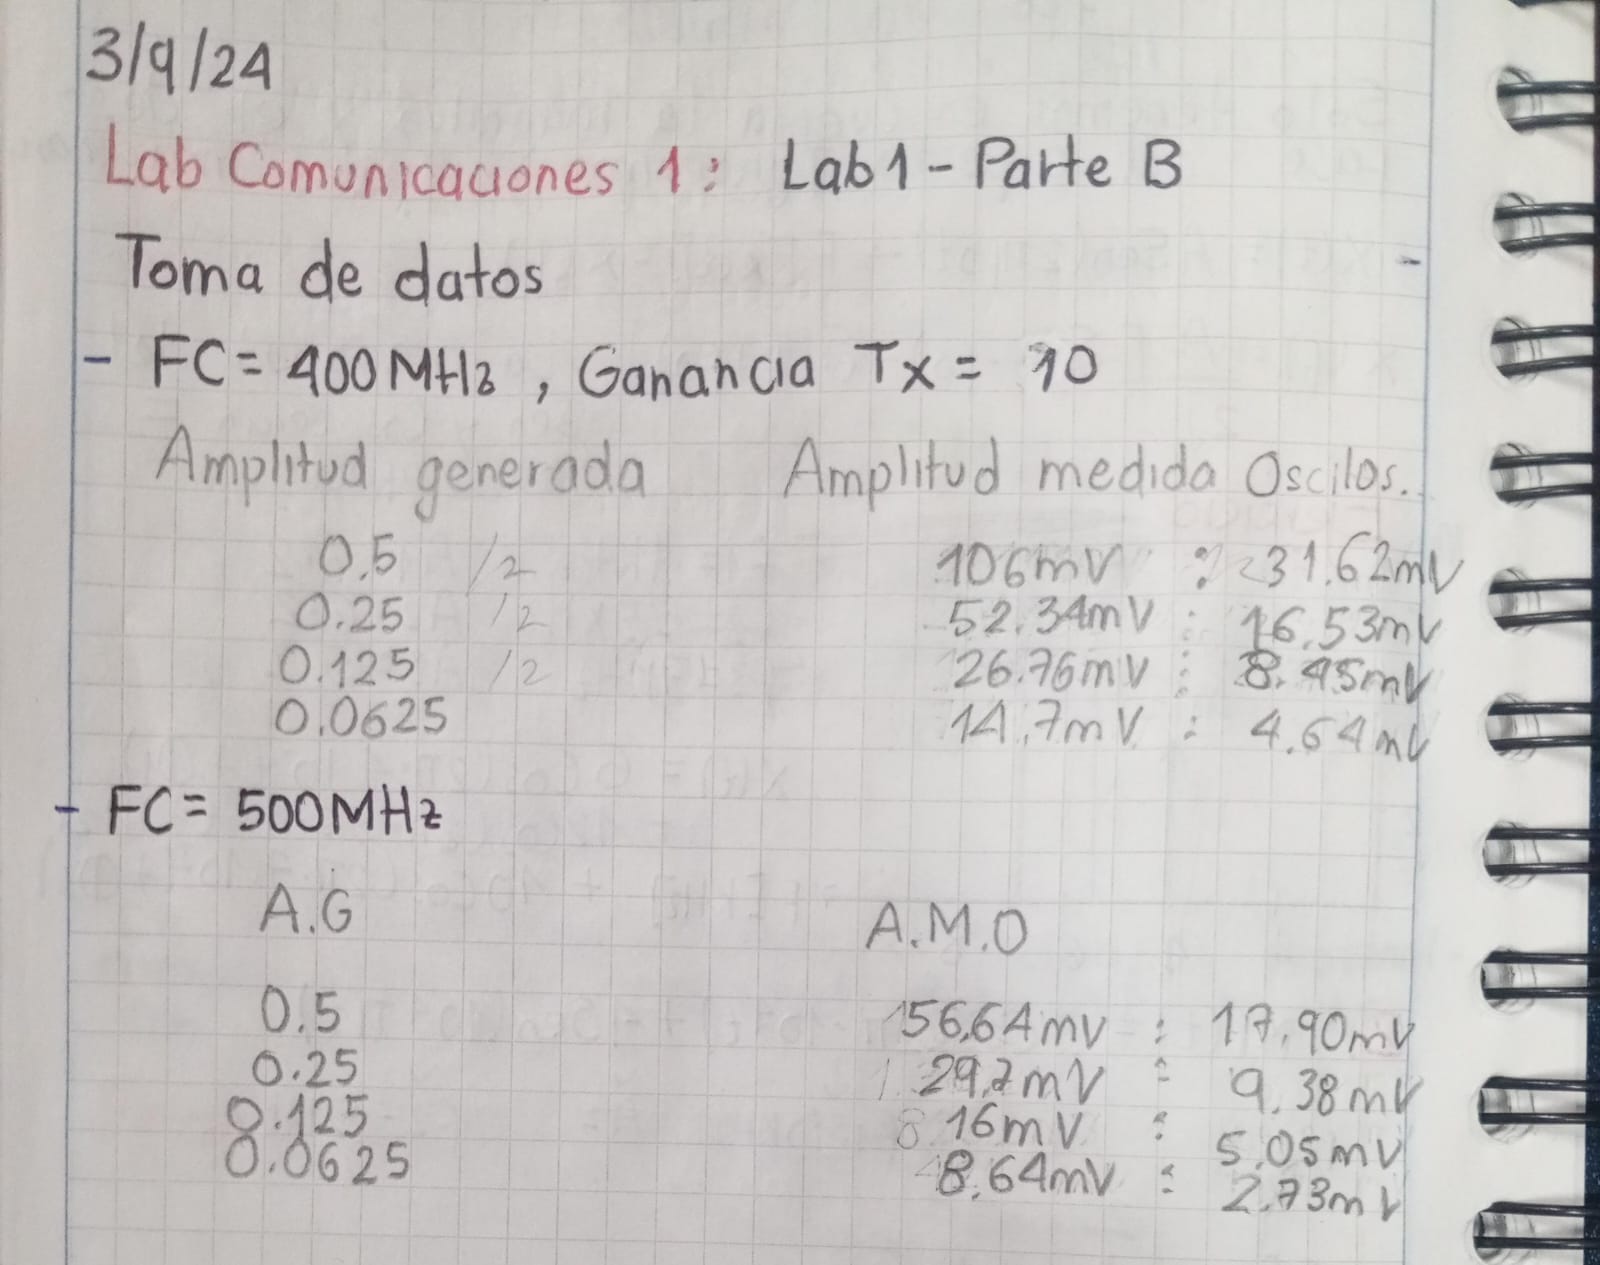 3/9/24
Lab Comunicaciones 1: Lab 1 - Parte B
Toma de datos
- FC = 400MHz, Ganancia Tx = 10
Amplitud generada Amplitud medida Oscilos.
0.5 /2 106mV : 31.62mV
0.25 /2 52.34mV : 16.53mV
0.125 /2 26.76mV : 8.45mV
0.0625 14.7mV : 4.64mV
- FC = 500MHz
A.G A.M.O
0.5 56.64mV : 17.90mV
0.25 29.2mV : 9.38mV
0.125 16mV : 5.05mV
0.0625 8.64mV : 2.73mV